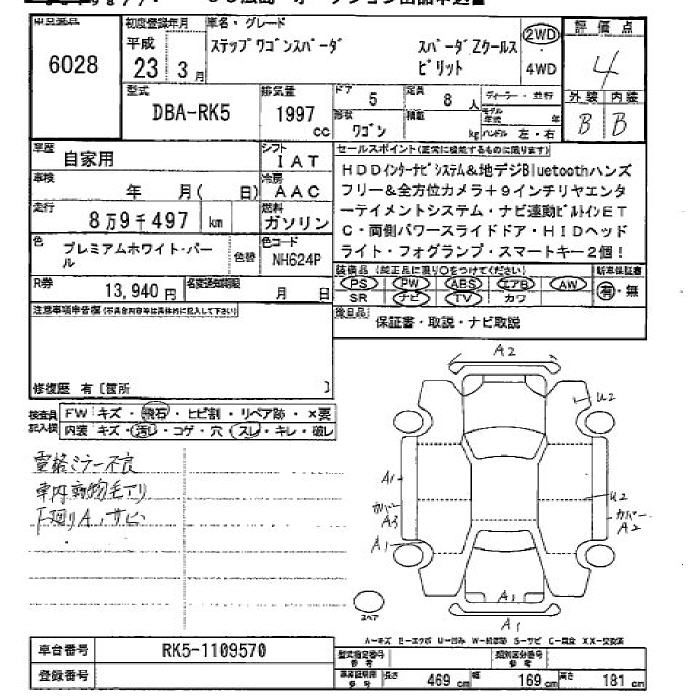 6028
初度登録年月
平成
23年3月
車名・グレード
ステップワゴンスパーダ
スパーダZクールス
ピリット
2WD
4WD
評価点
4
外装 内装
B B
型式
DBA-RK5
排気量
1997
cc
ドア
5
定員
8 人
ディーラー・並行
形状
ワゴン
積載
kg
モデル年式 年
ハンドル 左・右
車歴
自家用
シフト
IAT
車検
年 月( 日)
冷房
AAC
走行
8万9千497 km
燃料
ガソリン
色
プレミアムホワイト・パー
ル
色替
色コード
NH624P
R券
13,940円
名変通知期限
月 日
セールスポイント(正常に機能するものに限ります)
HDDインターナビシステム&地デジBluetoothハンズ
フリー&全方位カメラ+9インチリヤエンタ
ーテイメントシステム・ナビ連動ビルトインET
C・両側パワースライドドア・HIDヘッド
ライト・フォグランプ・スマートキー2個!
装備品(純正品に限り○をつけてください)
新車保証書
PS PW ABS エアB AW
SR ナビ TV カワ
有・無
後日品
保証書・取説・ナビ取説
注意事項申告欄(不具合内容等は具体的に記入して下さい)
修復歴 有[箇所 ]
検査員
記入欄
FW キズ・飛石・ヒビ割・リペア跡・×要
内装 キズ・汚れ・コゲ・穴・スレ・キレ・破レ
電格ミラー不良
車内動物毛アリ
下廻りA、サビ
A2
U2
A1
カバー
A3
A1
U2
カバー
A2
A1
A1
スペア
A−キズ E−エクボ U−凹み W−補修跡 S−サビ C−腐食 XX−交換済
車台番号
RK5-1109570
登録番号
型式指定番号
参考
類別区分番号
参考
車検証記載
参考
長さ 469 cm 幅 169 cm 高さ 181 cm